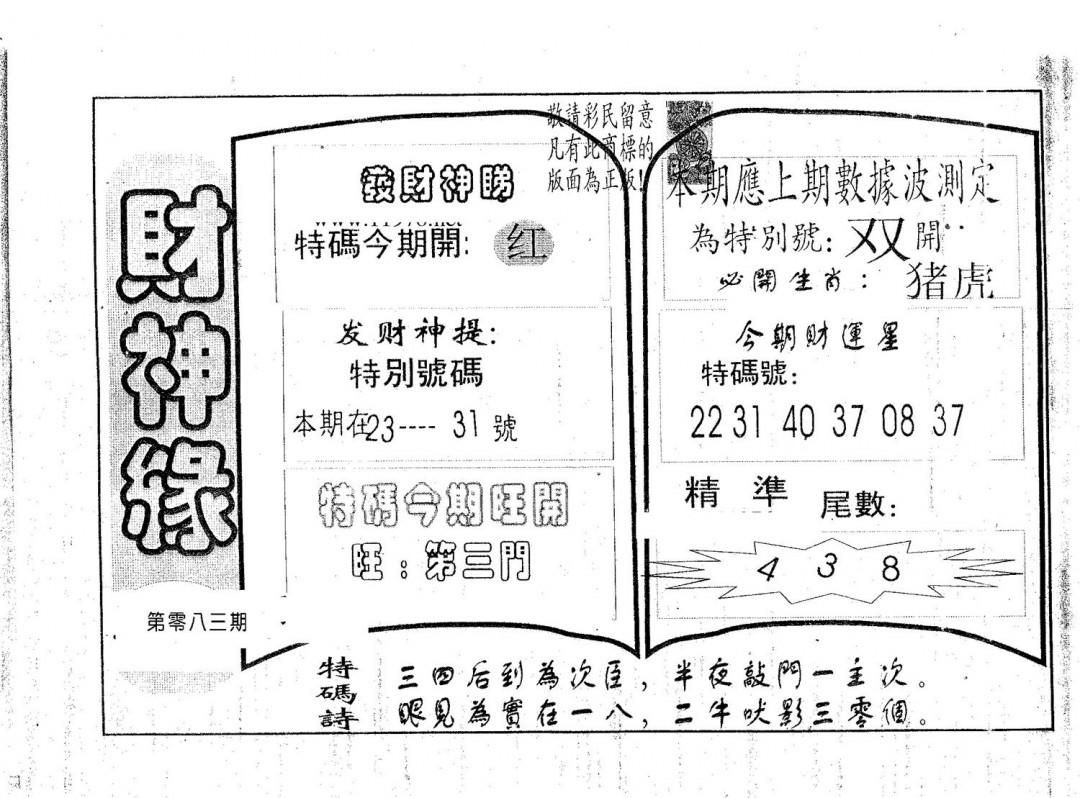 財神緣
第零八三期
敬請彩民留意
凡有此商標的
版面為正版!
發財神睇
特碼今期開: 红
发财神提:
特別號碼
本期在23----31號
特碼今期旺開
旺:第三門
本期應上期數據波測定
為特別號: 双 開
必開生肖: 猪虎
今期財運星
特碼號:
22 31 40 37 08 37
精準 尾數:
4 3 8
特碼詩
三四后到為次臣,半夜敲門一主次。
眼見為實在一八,二牛吠影三零個。